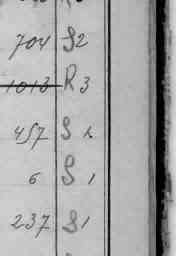 704 S2
1013 R3
457 S
6 S1
237 S1